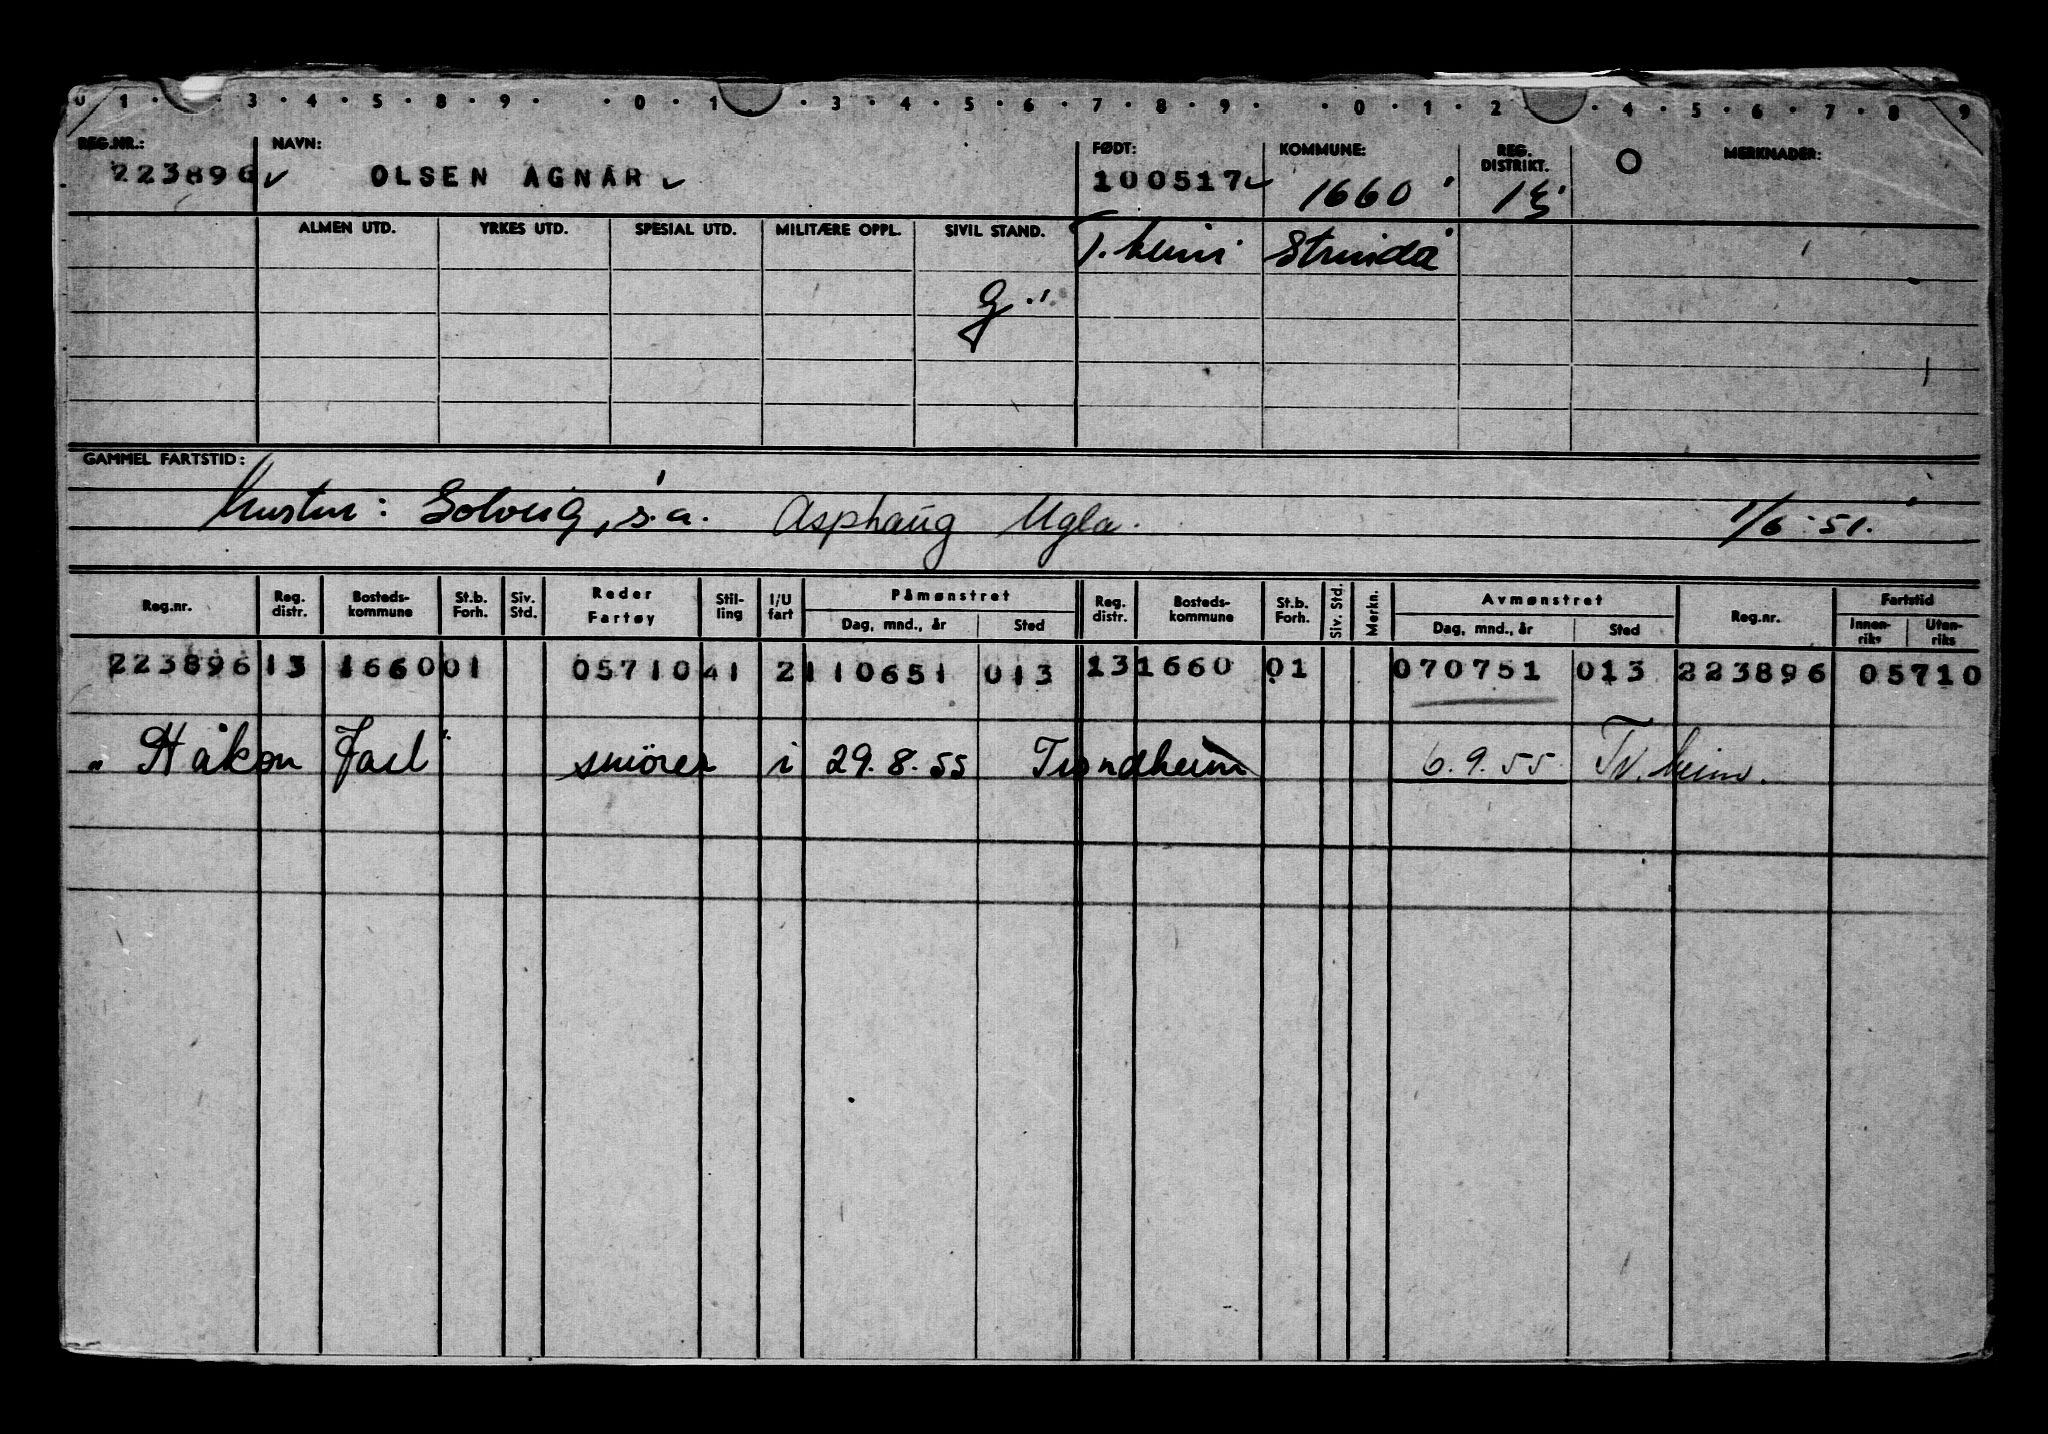 0 1 · 3 · 4 · 5 · 8 · 9 · · 0 · 1 · 3 · 4 · 5 · 6 · 7 · 8 · 9 · · 0 · 1 · 2 · 4 · 5 · 6 · 7 · 8 9
REG.NR.: NAVN: FØDT: KOMMUNE: REG. DISTRIKT. MERKNADER:
223896 OLSEN AGNAR 100517 1660 13
ALMEN UTD. YRKES UTD. SPESIAL UTD. MILITÆRE OPPL. SIVIL STAND. T.heim Strinda
g.
GAMMEL FARTSTID:
Hustru: Solveig, s.a. Asphaug Ugla. 1/6-51.
Reg.nr. Reg. distr. Bosteds-kommune St.b. Forh. Siv. Std. Reder Fartøy Stil-ling I/U fart Påmønstret Reg. distr. Bosteds-kommune St.b. Forh. Siv. Std. Merkn. Avmønstret Reg.nr. Fartstid
Dag, mnd., år Sted Dag, mnd., år Sted Innen-riks Uten-riks
223896 13 1660 01 05710 41 2 110651 013 13 1660 01 070751 013 223896 05710
"Håkon Jarl" smører i 29.8.55 Trondheim 6.9.55 Tr.heim.